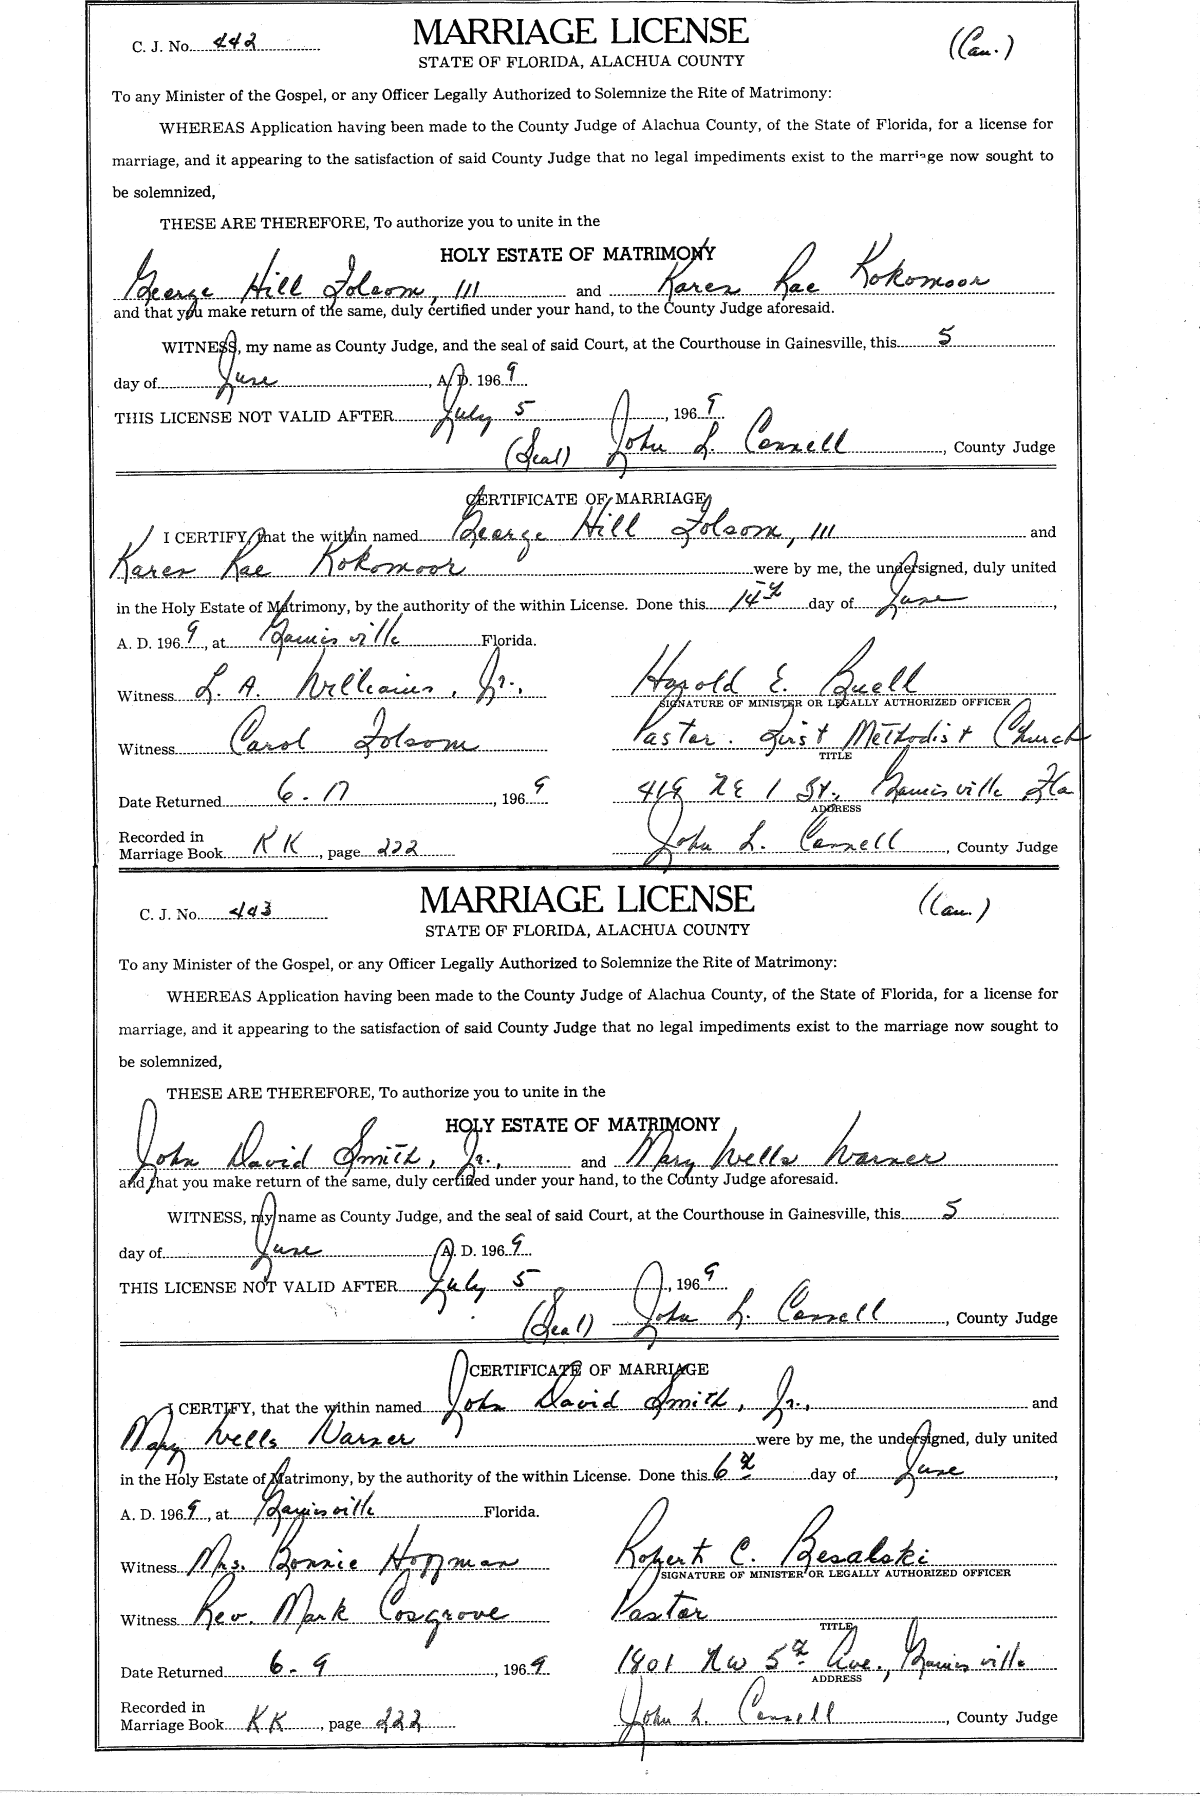 MARRIAGE LICENSE
C. J. No. 442 (Cau.)
STATE OF FLORIDA, ALACHUA COUNTY
To any Minister of the Gospel, or any Officer Legally Authorized to Solemnize the Rite of Matrimony:
WHEREAS Application having been made to the County Judge of Alachua County, of the State of Florida, for a license for
marriage, and it appearing to the satisfaction of said County Judge that no legal impediments exist to the marriage now sought to
be solemnized,
THESE ARE THEREFORE, To authorize you to unite in the
HOLY ESTATE OF MATRIMONY
George Hill Folsom, III and Karen Rae Kokomoor
and that you make return of the same, duly certified under your hand, to the County Judge aforesaid.
WITNESS, my name as County Judge, and the seal of said Court, at the Courthouse in Gainesville, this 5
day of June, A. D. 1969
THIS LICENSE NOT VALID AFTER July 5, 1969
(Seal) John L. Connell, County Judge
CERTIFICATE OF MARRIAGE
I CERTIFY, that the within named George Hill Folsom, III and
Karen Rae Kokomoor were by me, the undersigned, duly united
in the Holy Estate of Matrimony, by the authority of the within License. Done this 14th day of June,
A. D. 1969, at Gainesville Florida.
Witness L. A. Williams, Jr., Harold E. Buell
SIGNATURE OF MINISTER OR LEGALLY AUTHORIZED OFFICER
Witness Carol Folsom Pastor. First Methodist Church
TITLE
Date Returned 6-17, 1969 419 NE 1 St., Gainesville Fla
ADDRESS
Recorded in
Marriage Book KK, page 222 John L. Connell, County Judge
MARRIAGE LICENSE
C. J. No. 443 (Cau.)
STATE OF FLORIDA, ALACHUA COUNTY
To any Minister of the Gospel, or any Officer Legally Authorized to Solemnize the Rite of Matrimony:
WHEREAS Application having been made to the County Judge of Alachua County, of the State of Florida, for a license for
marriage, and it appearing to the satisfaction of said County Judge that no legal impediments exist to the marriage now sought to
be solemnized,
THESE ARE THEREFORE, To authorize you to unite in the
HOLY ESTATE OF MATRIMONY
John David Smith, Jr., and Mary Wells Warner
and that you make return of the same, duly certified under your hand, to the County Judge aforesaid.
WITNESS, my name as County Judge, and the seal of said Court, at the Courthouse in Gainesville, this 5
day of June A. D. 1969
THIS LICENSE NOT VALID AFTER July 5, 1969
(Seal) John L. Connell, County Judge
CERTIFICATE OF MARRIAGE
I CERTIFY, that the within named John David Smith, Jr., and
Mary Wells Warner were by me, the undersigned, duly united
in the Holy Estate of Matrimony, by the authority of the within License. Done this 6th day of June,
A. D. 1969, at Gainesville Florida.
Witness Mrs. Bonnie Hoffman Robert C. Besalski
SIGNATURE OF MINISTER OR LEGALLY AUTHORIZED OFFICER
Witness Rev. Mark Cosgrove Pastor
TITLE
Date Returned 6-9, 1969 1801 NW 5th Ave., Gainesville
ADDRESS
Recorded in
Marriage Book KK, page 222 John L. Connell, County Judge